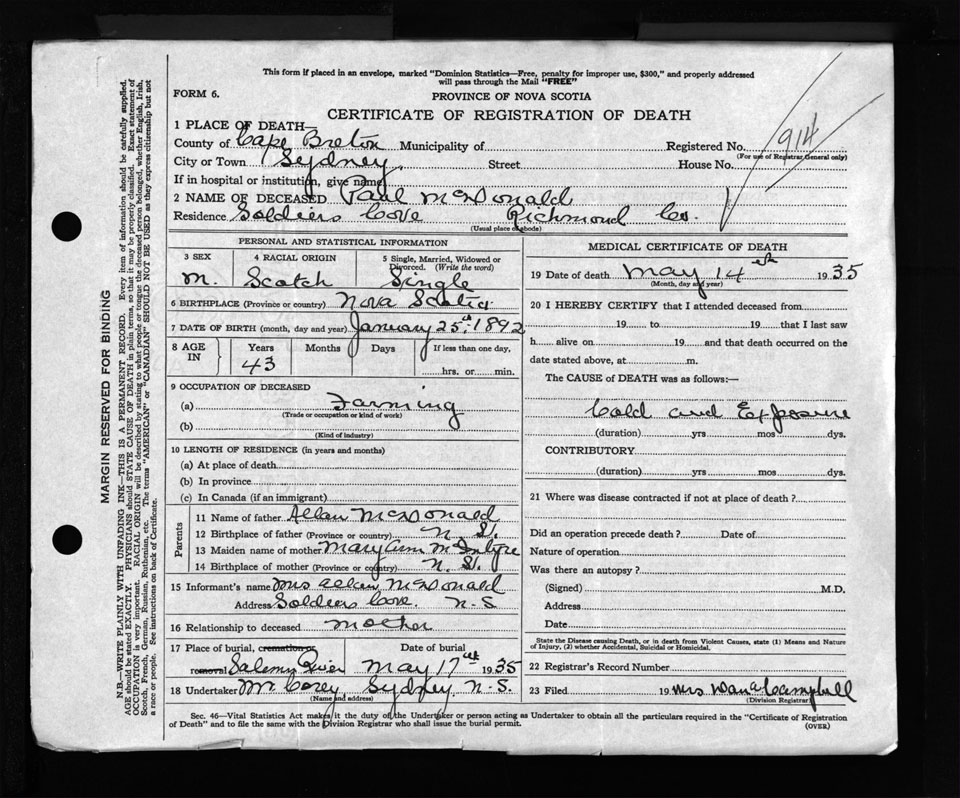 This form if placed in an envelope, marked "Dominion Statistics—Free, penalty for improper use, $300," and properly addressed
will pass through the Mail "FREE"
FORM 6.
PROVINCE OF NOVA SCOTIA
CERTIFICATE OF REGISTRATION OF DEATH
914
1 PLACE OF DEATH—
County of Cape Breton Municipality of Registered No.
(For use of Registrar General only)
City or Town Sydney Street House No.
If in hospital or institution, give name
2 NAME OF DECEASED Paul McDonald
Residence Soldiers Cove Richmond Co.
(Usual place of abode)
PERSONAL AND STATISTICAL INFORMATION
3 SEX 4 RACIAL ORIGIN 5 Single, Married, Widowed or
Divorced. (Write the word)
M. Scotch Single
6 BIRTHPLACE (Province or country) Nova Scotia
7 DATE OF BIRTH (month, day and year) January 25th, 1892
8 AGE IN Years Months Days If less than one day,
43 hrs. or min.
9 OCCUPATION OF DECEASED
(a) Farming
(Trade or occupation or kind of work)
(b)
(Kind of industry)
10 LENGTH OF RESIDENCE (in years and months)
(a) At place of death
(b) In province
(c) In Canada (if an immigrant)
Parents
11 Name of father Allan McDonald
12 Birthplace of father (Province or country) N. S.
13 Maiden name of mother Mary Ann McIntyre
14 Birthplace of mother (Province or country) N. S.
15 Informant's name Mrs Allan McDonald
Address Soldiers Cove. N-S
16 Relationship to deceased Mother
17 Place of burial, cremation or Date of burial
removal River May 17th 1935
18 Undertaker Mr. Corey Sydney N-S.
(Name and address)
MEDICAL CERTIFICATE OF DEATH
19 Date of death May 14th 1935
(Month, day and year)
20 I HEREBY CERTIFY that I attended deceased from
19 to 19 that I last saw
h alive on 19 and that death occurred on the
date stated above, at m.
The CAUSE of DEATH was as follows:—
Cold and Exposure
(duration) yrs mos dys.
CONTRIBUTORY
(duration) yrs. mos. dys.
21 Where was disease contracted if not at place of death?
Did an operation precede death? Date of
Nature of operation
Was there an autopsy?
(Signed) M.D.
Address
Date
State the Disease causing Death, or in death from Violent Causes, state (1) Means and Nature
of Injury, (2) whether Accidental, Suicidal or Homicidal.
22 Registrar's Record Number
23 Filed 19 Mrs Campbell
(Division Registrar)
Sec. 46—Vital Statistics Act makes it the duty of the Undertaker or person acting as Undertaker to obtain all the particulars required in the "Certificate of Registration
of Death" and to file the same with the Division Registrar who shall issue the burial permit. (OVER)
MARGIN RESERVED FOR BINDING
N.B.—WRITE PLAINLY WITH UNFADING INK—THIS IS A PERMANENT RECORD. Every item of information should be carefully supplied.
AGE should be stated EXACTLY. PHYSICIANS should STATE CAUSE OF DEATH in plain terms, so that it may be properly classified. Exact statement of
OCCUPATION is very important. RACIAL ORIGIN will be described by stating to what people or tongue the deceased person belonged, whether English, Irish,
Scotch, French, German, Russian, Ruthenian, etc. The terms "AMERICAN" or "CANADIAN" SHOULD NOT BE USED as they express citizenship but not
a race or people. See instructions on back of Certificate.